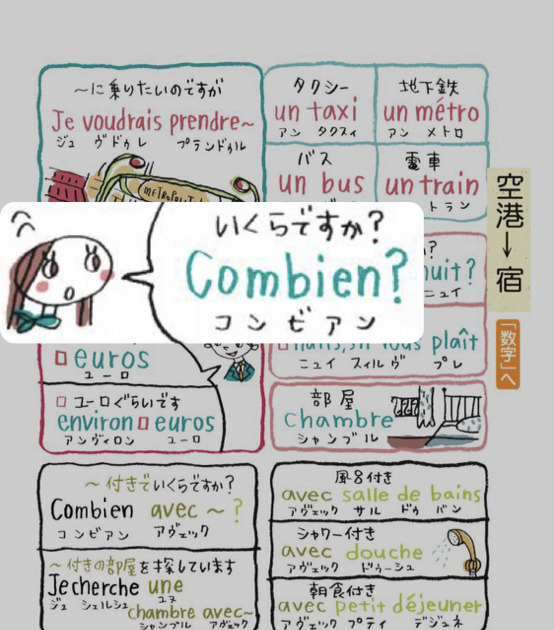 ～に乗りたいのですが
Je voudrais prendre～
ジュ ヴドゥレ プランドゥル
METROPOLIT
タクシー
un taxi
アン タクスィ
地下鉄
un métro
アン メトロ
バス
un bus
電車
un train
トラン
空港→宿
「数字」へ
いくらですか?
Combien?
コンビアン
?
nuit?
ニュイ
plaît
ニュイ スィル ヴ プレ
□ euros
ユーロ
□ ユーロぐらいです
environ □ euros
アンヴィロン ユーロ
部屋
chambre
シャンブル
～付きでいくらですか?
Combien avec ～?
コンビアン アヴェック
～付きの部屋を探しています
Je cherche une
ジュ シェルシュ ユヌ
chambre avec～
シャンブル アヴェック
風呂付き
avec salle de bains
アヴェック サル ドゥ バン
シャワー付き
avec douche
アヴェック ドゥーシュ
朝食付き
avec petit déjeuner
アヴェック プティ デジュネ